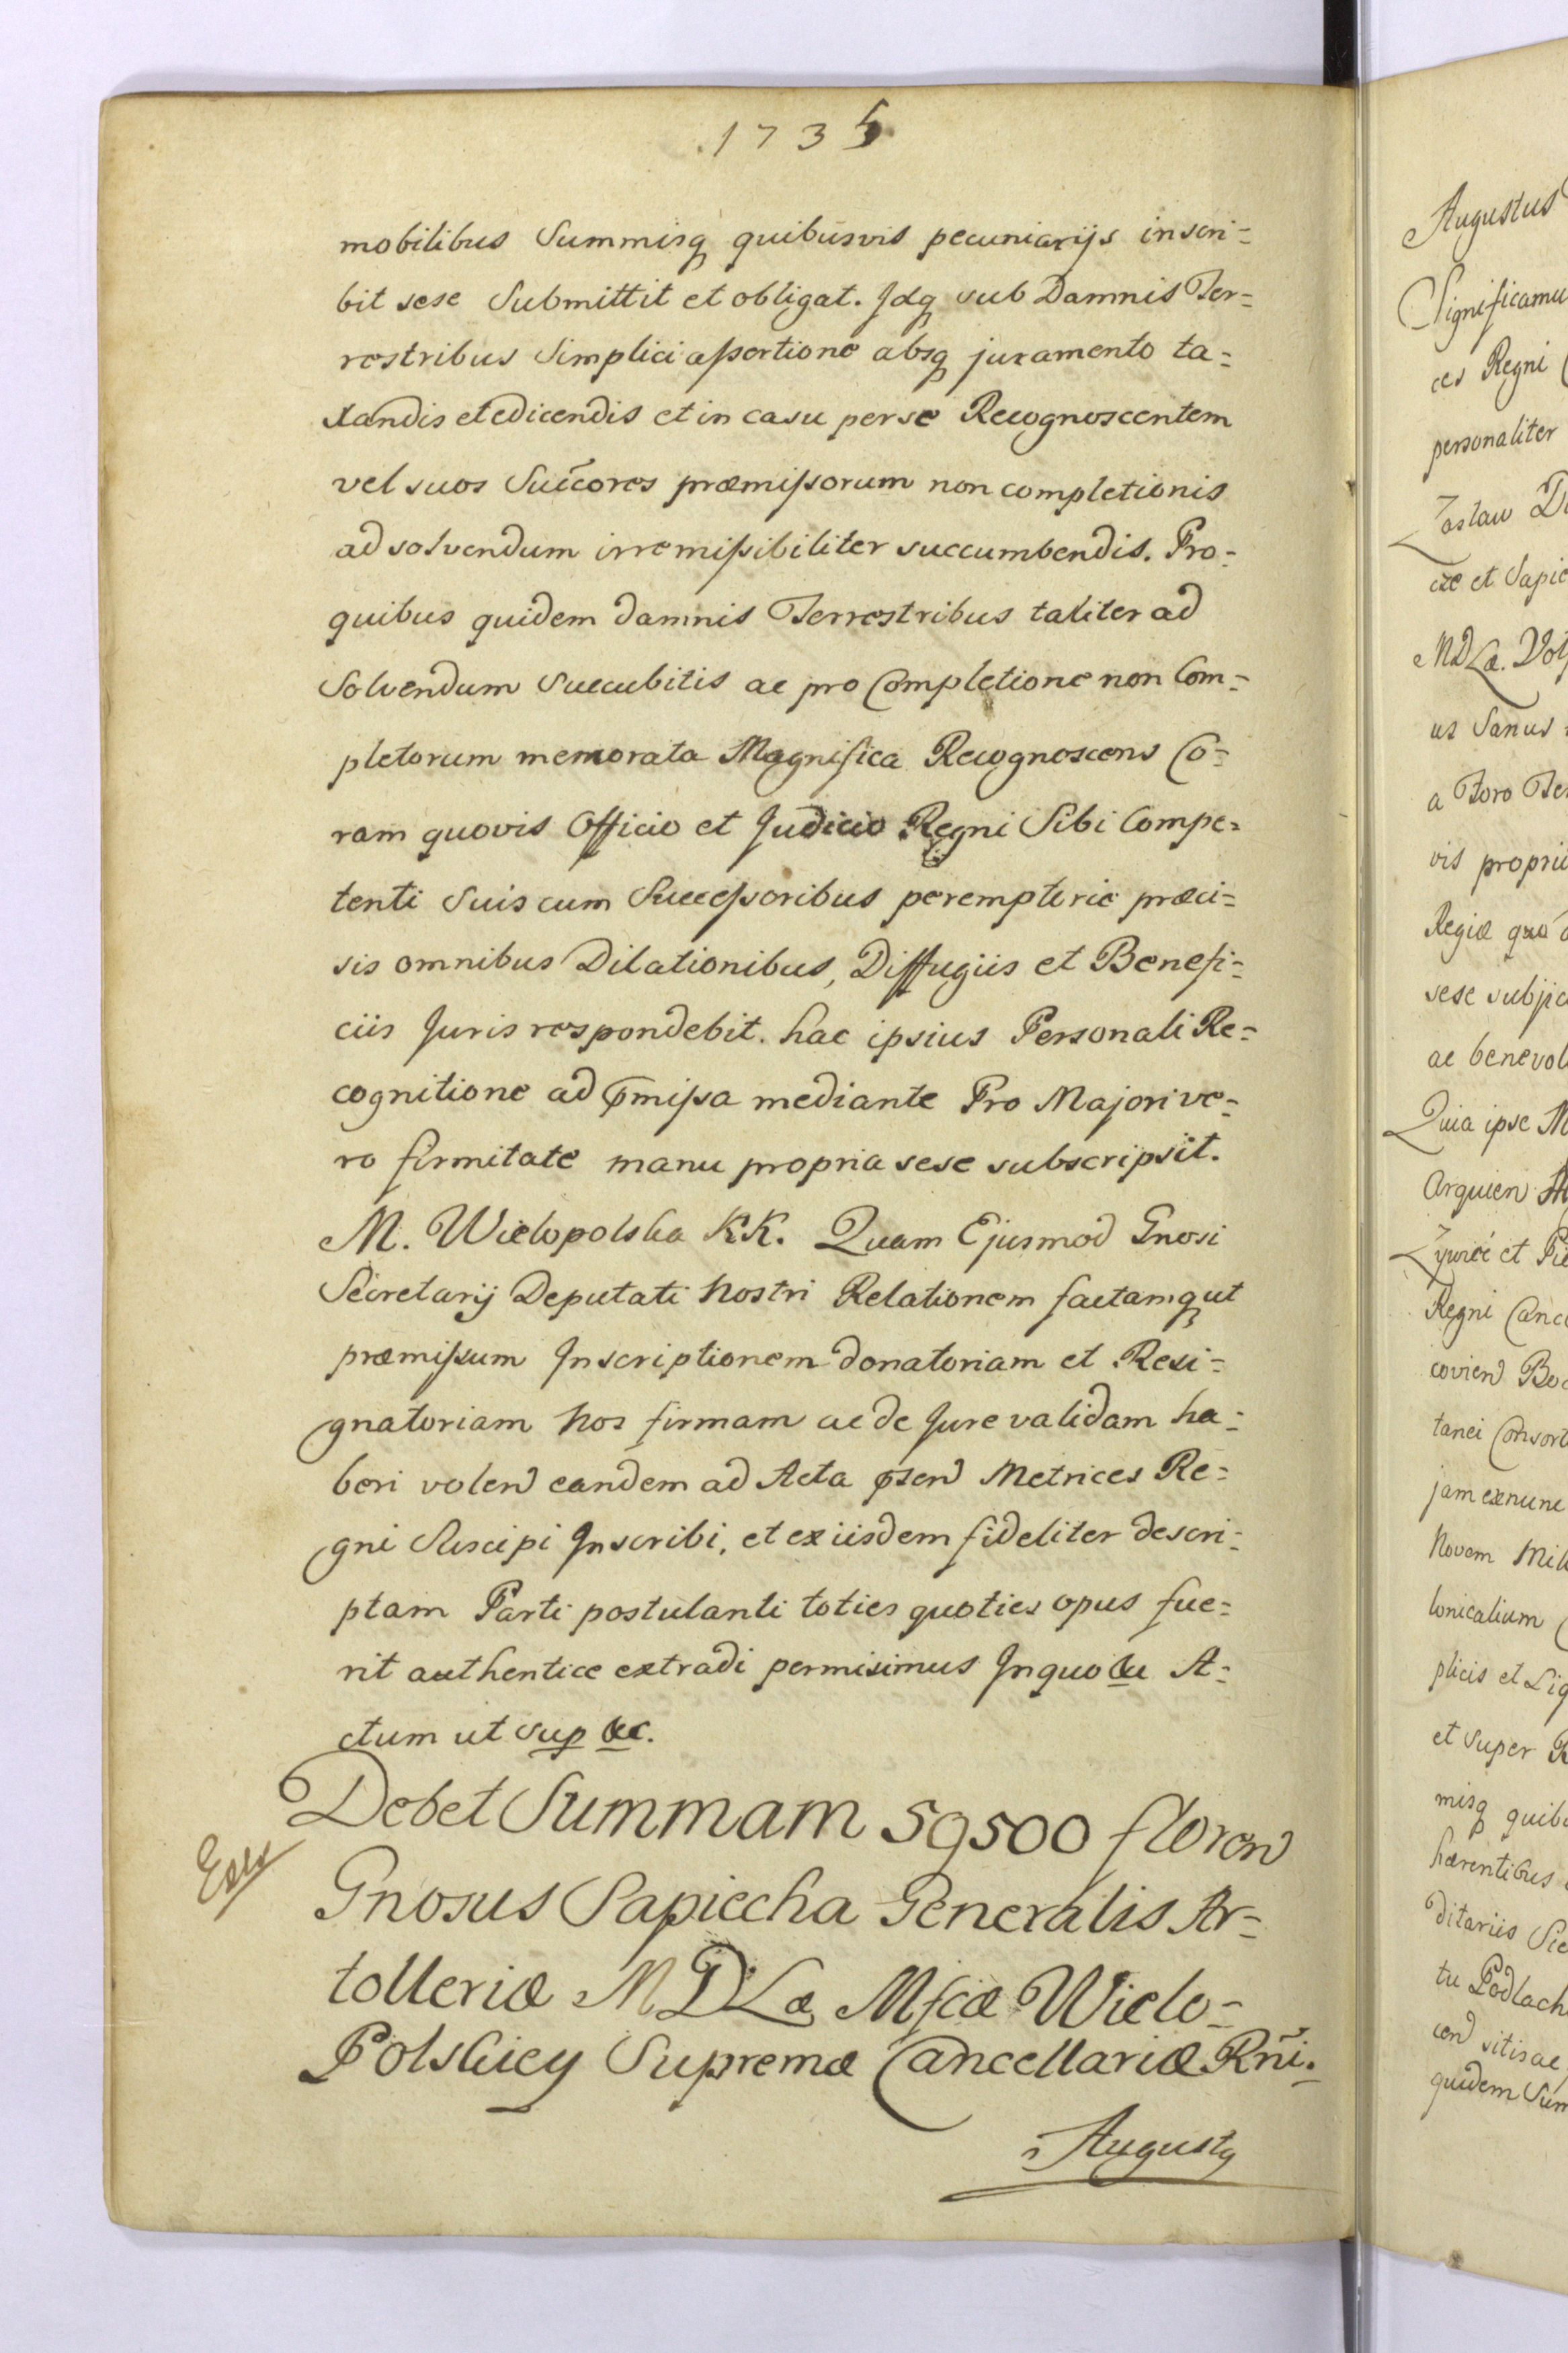 1735
mobilibus Summisq quibusvis pecuniarijs inscri=
bit sese Submittit et obligat. Jdq sub Damnis Ter=
restribus Simplici assertione absq juramento ta=
xandis et edicendis et in casu per se Recognoscentem
vel suos Succores præmissorum non completionis
ad solvendum irremissibiliter succumbendis. Pro=
quibus quidem damnis Terrestribus taliter ad
Solvendum Succubitis ac pro Completione non Com=
pletorum memorata Magnifica Recognoscens Co=
ram quovis Officio et Judicio Regni Sibi Compe=
tenti Suis cum Successoribus peremptorie præci=
sis omnibus Dilationibus, Diffugiis et Benefi=
ciis Juris respondebit. hac ipsius Personali Re=
cognitione ad pmissa mediante Pro Majori ve=
ro firmitate manu propria sese subscripsit.
M. Wielopolska KK. Quam Ejusmod Gnosi
Secretarij Deputati Nostri Relationem factamq ut
præmissum Inscriptionem donatoriam et Resi=
gnatoriam Nos firmam ac de Jure validam ha=
beri volen eandem ad Acta psen Metrices Re=
gni Suscipi Inscribi, et ex iisdem fideliter descri=
ptam Parti postulanti toties quoties opus fue=
rit authentice extradi permisimus Jn quo &c A=
ctum ut sup &c.
Debet Summam 59500 floren
Gnosus Sapiecha Generalis Ar=
tolleriæ MDLæ Mfcæ Wielo=
Polskiey Supremæ Cancellariæ Rni.
Augustq
Augustus
Significamu
ces Regni
personaliter
Zaslaw
cæ et Sapie
MDLæ.
us Sanus
a Foro Ter
vis propri
Regiæ
sese subjic
ac benevol
Quia ipse M
Arquien
Zywiec et Pie
Regni Canc
covien
tanei Consort
jam exnunc
Novem Mill
lonicalium
plicis et Liq
et Super
misq quib
hærentibus
ditariis
tu Podlach
cen sitis ac
quidem Sum